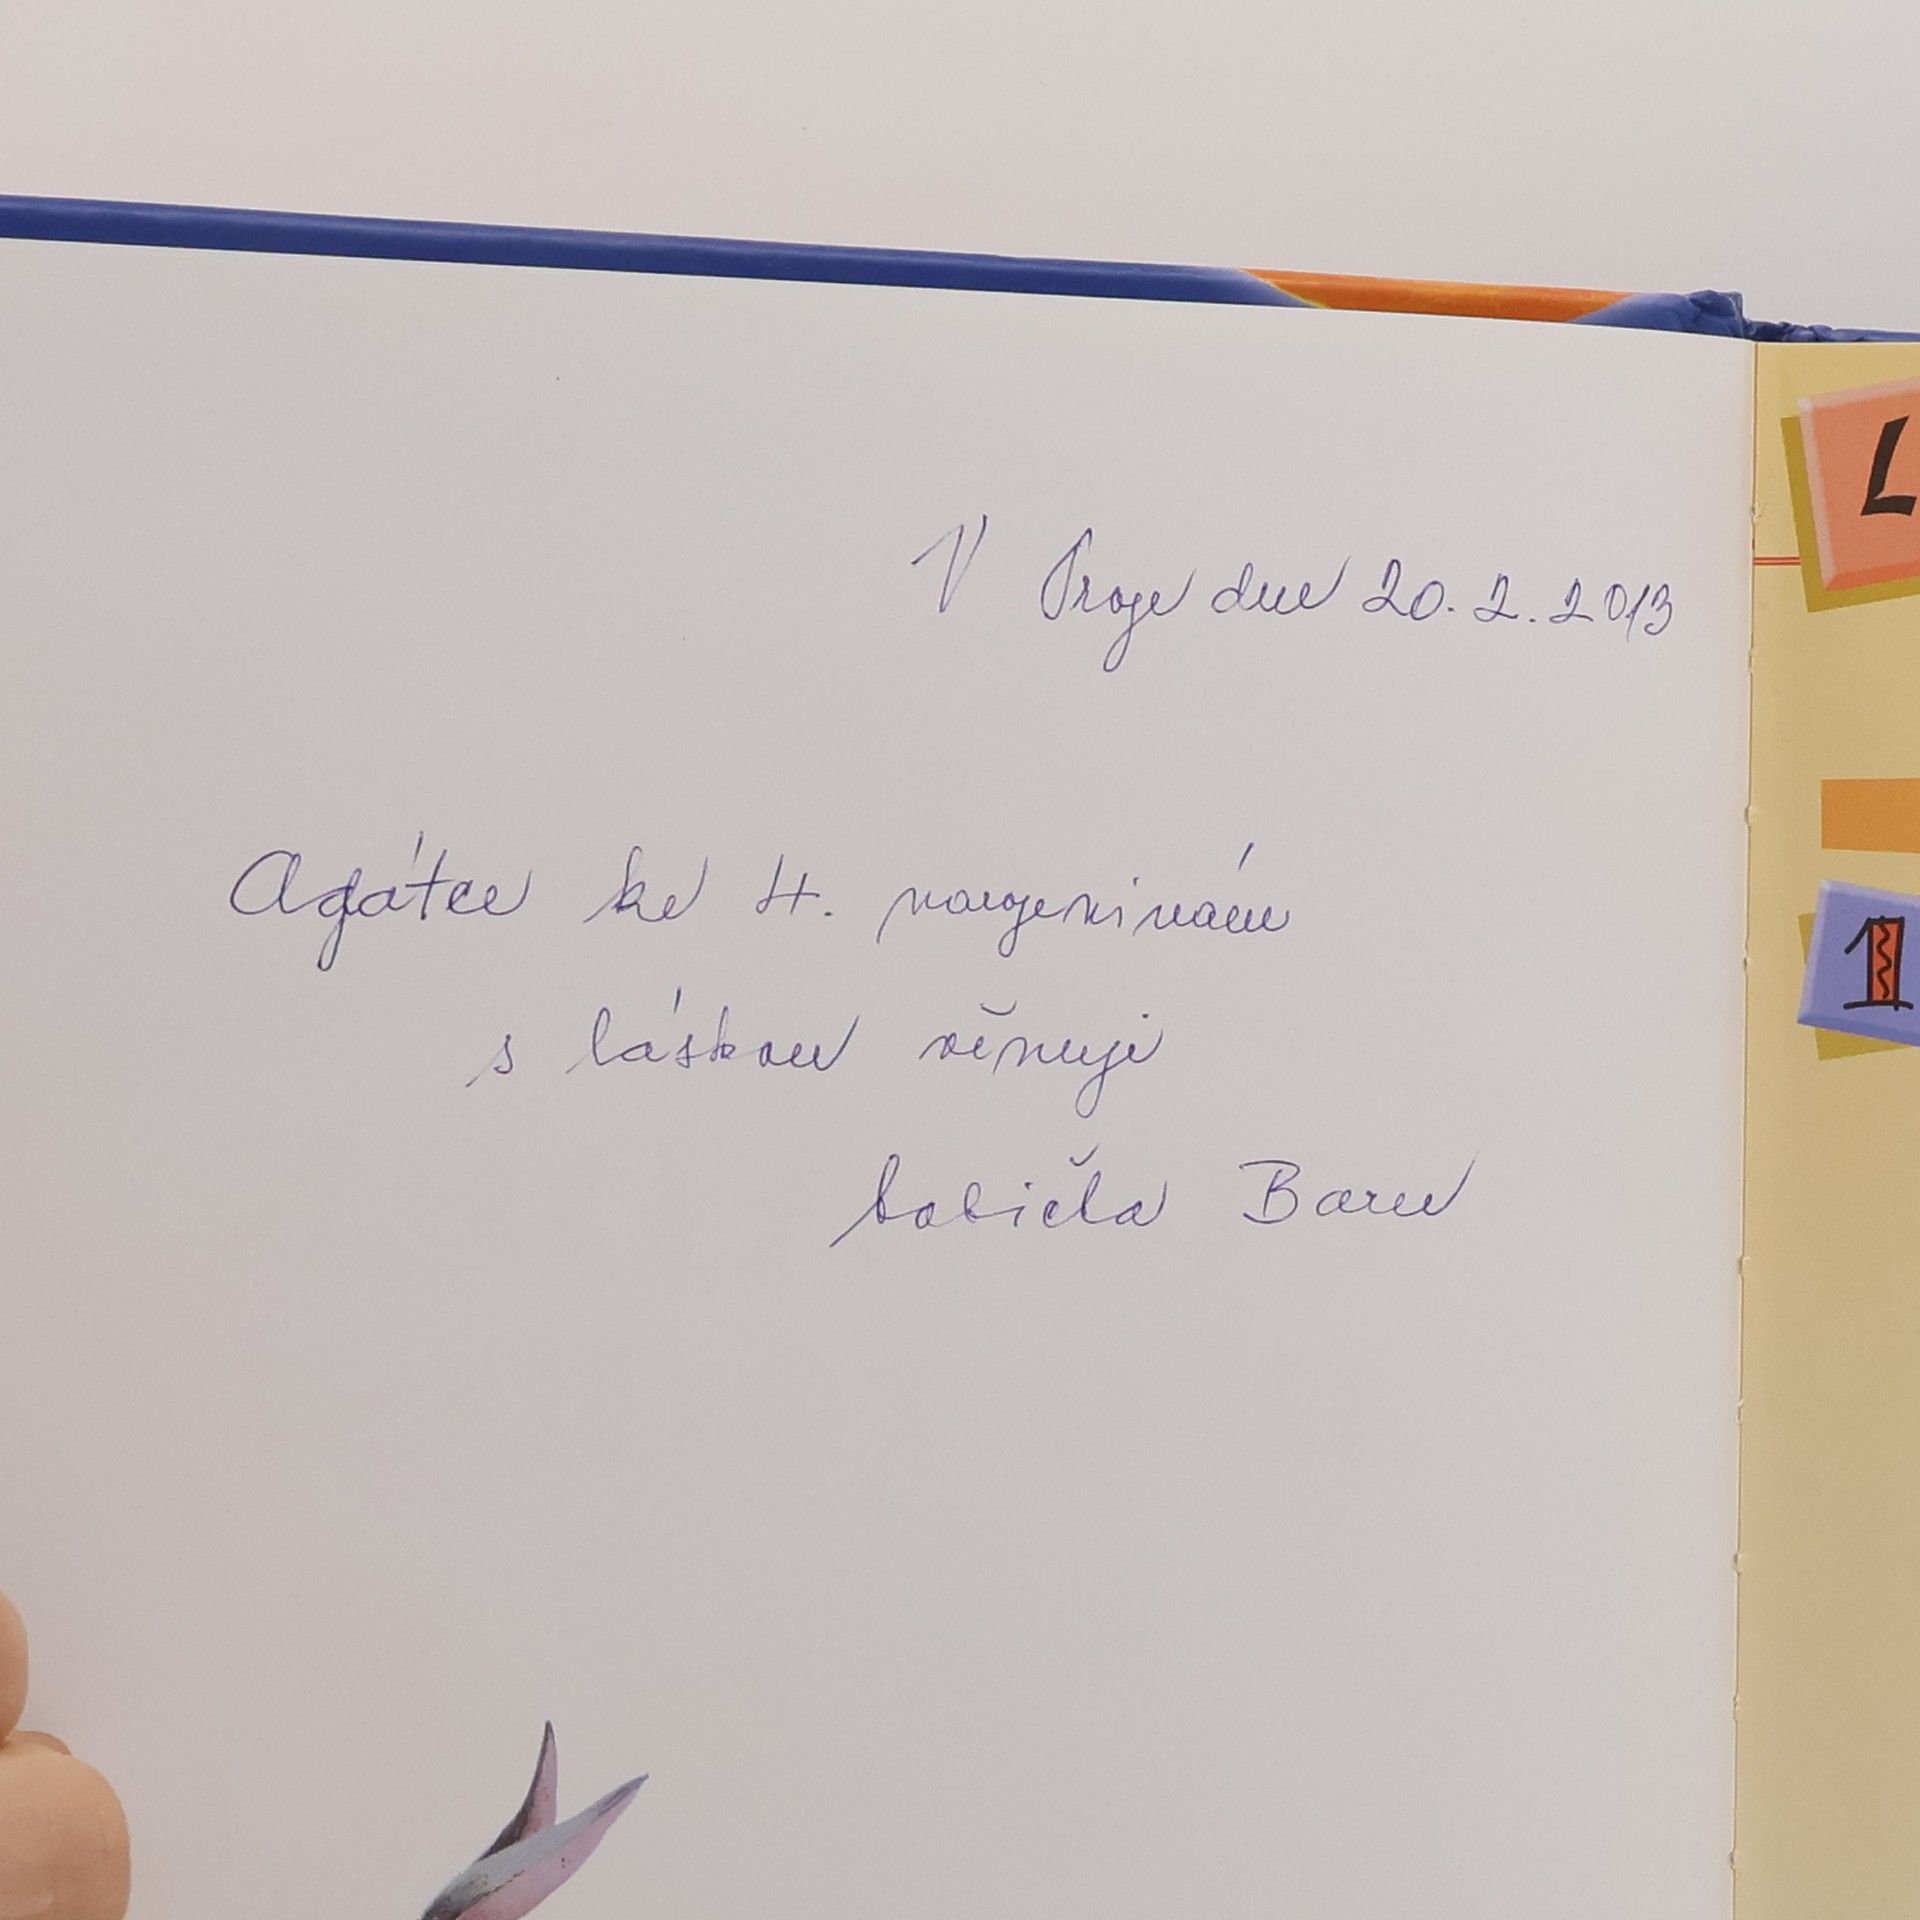 V Praze dne 20. 2. 2013
Agátce ke 4. narozeninám
s láskou věnuje
babička Baru
L
1